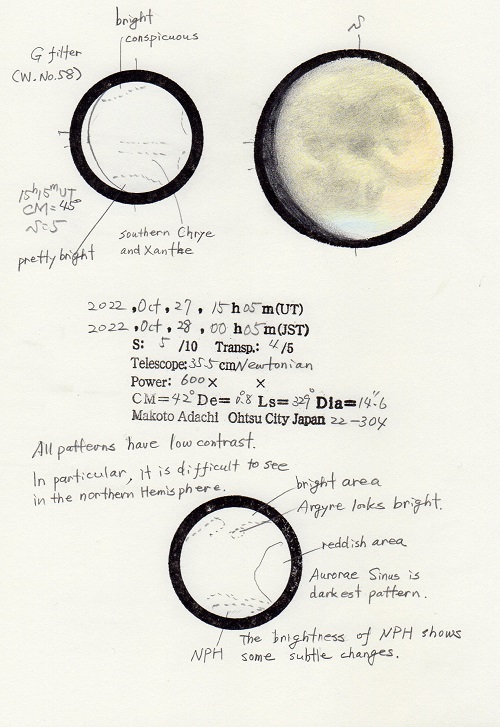 bright
conspicuous
G filter
(W.No.58)
S
15h15mUT
CM=45°
S=5
pretty bright
southern Chrye
and Xanthe
2022 , Oct , 27 , 15 h 05 m(UT)
2022 , Oct , 28 , 00 h 05 m(JST)
S: 5 /10 Transp.: 4 /5
Telescope: 35.5 cm Newtonian
Power: 600 × ×
CM=42° De= 0.8° Ls= 329° Dia= 14."6
Makoto Adachi Ohtsu City Japan 22-304
All patterns have low contrast.
In particular, it is difficult to see
in the northern Hemisphere.
bright area
Argyre looks bright.
reddish area
Aurorae Sinus is
darkest pattern.
NPH
The brightness of NPH shows
some subtle changes.